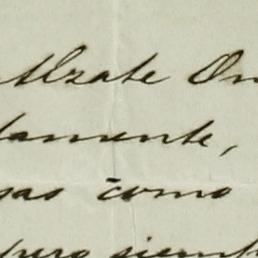 Alzate On
damente,
gas como
pero siemp